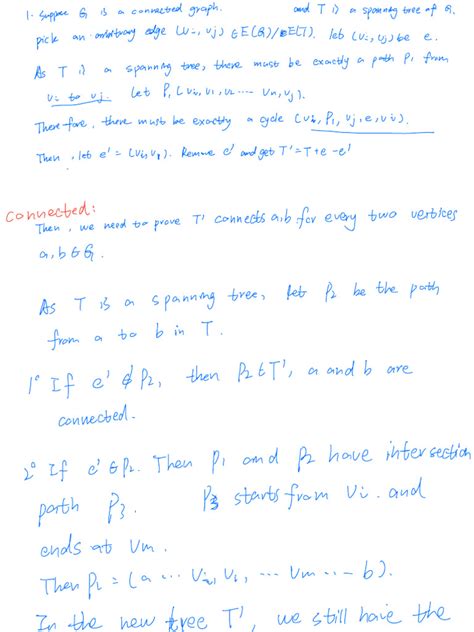 1. Suppose G is a connected graph. and T is a spanning tree of G.
pick an arbitrary edge (vi, vj) ∈ E(G)/E(T). let (vi, vj) be e.
As T is a spanning tree, there must be exactly a path P1 from
vi to vj. Let P1 (vi, v1, v2 ... vn, vj).
Therefore, there must be exactly a cycle (vi, P1, vj, e, vi).
Then, let e' = (vi, v1). Remove e' and get T' = T + e - e'
Connected:
Then, we need to prove T' connects a,b for every two vertices
a, b ∈ G.
As T is a spanning tree, let P2 be the path
from a to b in T.
1° If e' ∉ P2, then P2 ∈ T', a and b are
connected.
2° If e' ∈ P2. Then P1 and P2 have intersection
path P3. P3 starts from Vi and
ends at Vm.
Then P2 = (a ... Vi, V1, ... Vm ... b).
In the new tree T', we still have the